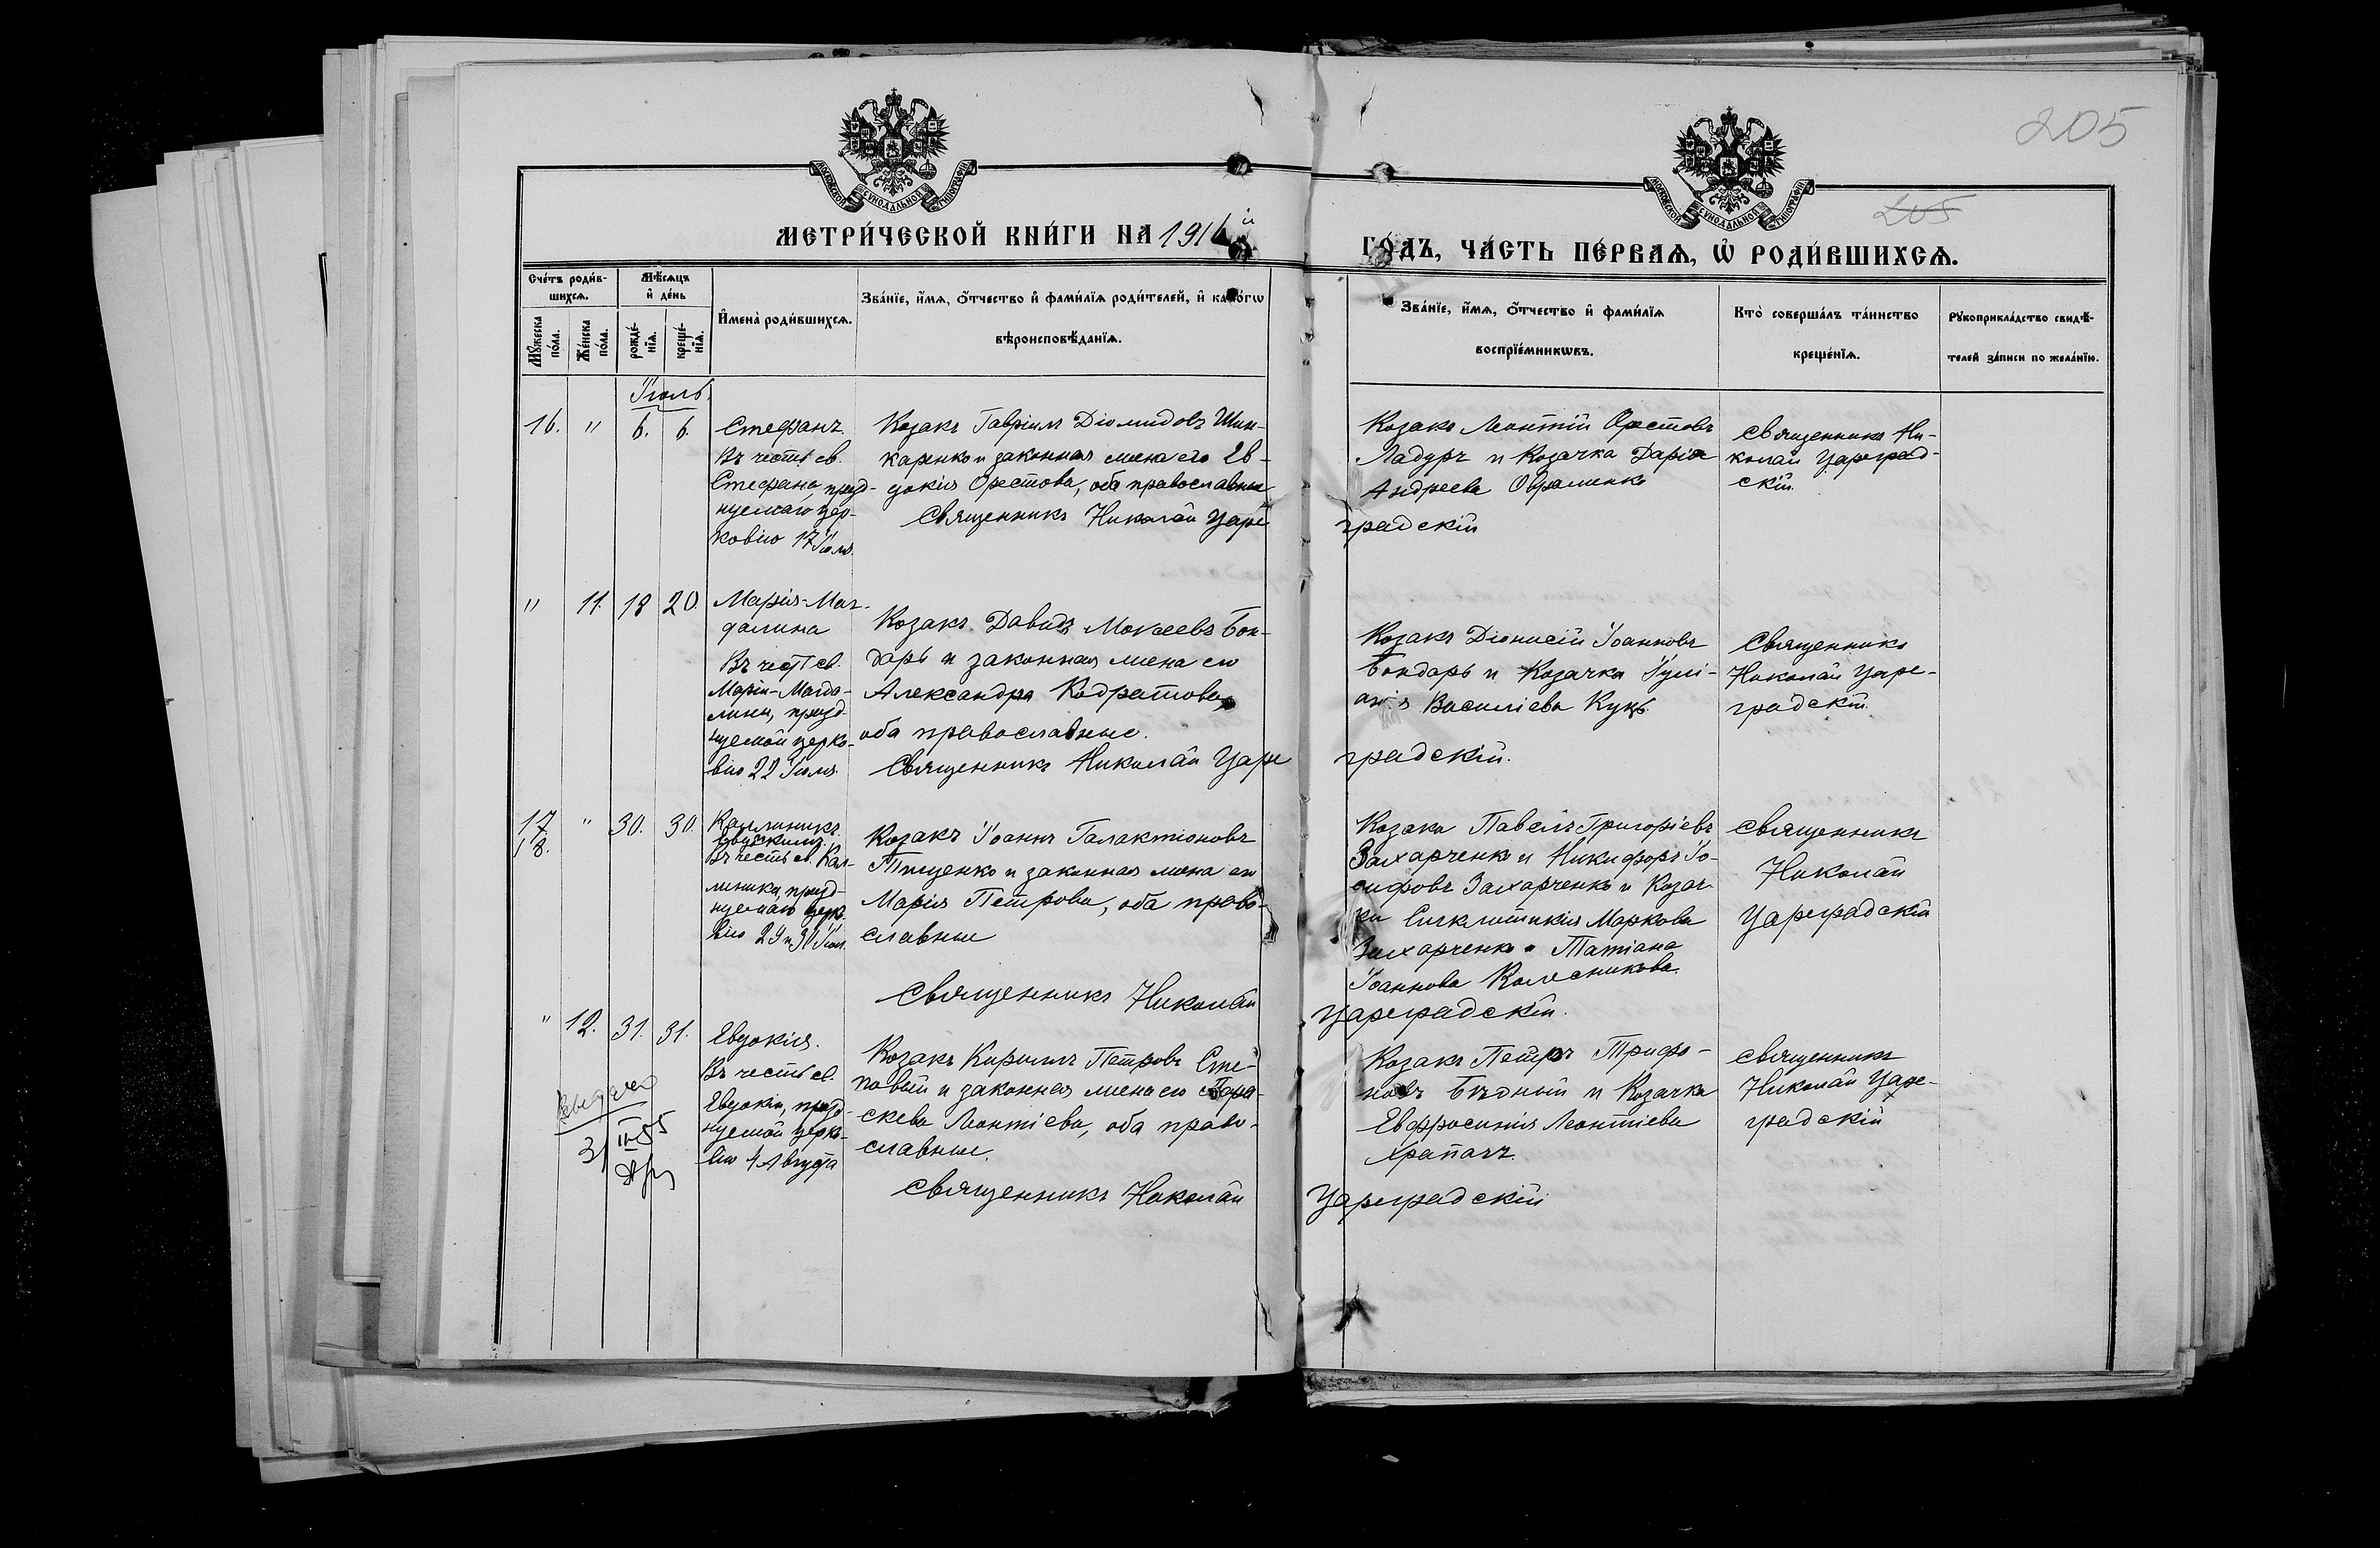 205
205
МОСКОВСКОЙ СѴНОДАЛЬНОЙ ТИПОГРАФІИ
МОСКОВСКОЙ СѴНОДАЛЬНОЙ ТИПОГРАФІИ
МЕТРИ́ЧЕСКОЙ КНИ́ГИ НА 1916й
ГО́ДЪ, ЧА́СТЬ ПЕ́РВАѦ, Ѡ҆ РОДИ́ВШИХСѦ.
Сче́тъ роди́в-
шихсѧ.
Мꙋ́жеска по́ла.
Же́нска по́ла.
Мѣ́сѧцъ
и҆ де́нь
рожде́-
нїѧ.
креще́-
нїѧ.
И҆мена̀ роди́вшихсѧ.
Зва́нїе, и҆́мѧ, ѻ҆́тчество и҆ фами́лїѧ роди́телей, и҆ како́гѡ
вѣроисповѣ́данїѧ.
Зва́нїе, и҆́мѧ, ѻ҆́тчество и҆ фами́лїѧ
воспрїе́мникѡвъ.
Кто̀ соверша́лъ та́инство
креще́нїѧ.
Рꙋкоприкла́дство свидѣ́-
телей за́писи по жела́нїю.
Іюль.
16. " 6. 6.
Стефанъ.
Въ честь св.
Стефана, празд-
нуемаго цер-
ковію 17 Іюля.
Козакъ Гавріилъ Діомидовъ Шин-
каренко и законная жена его Ев-
докія Орестова, оба православные
Священникъ Николай Царе
градскій
Козакъ Леонтій Орестовъ
Ладуръ и Козачка Дарія
Андреева Овраменко
Священникъ Ни-
колай Цареград-
скій.
" 11. 18 20.
Марія-Маг-
далина
Въ честь св.
Маріи-Магда-
лины, празд-
нуемой церко-
вію 22 Іюля.
Козакъ Давидъ Мокеевъ Бон-
дарь и законная жена его
Александра Кодратова,
оба православные.
Священникъ Николай Царе
градскій.
Козакъ Діонисій Іоанновъ
Бондарь и Козачка Іулі-
анія Василіева Куцъ.
Священникъ
Николай Царе-
градскій.
17. " 30. 30.
18.
Каллиникъ.
Въ честь св. Кал-
линика, празд-
нуемаго церко-
вію 29 и 30 Іюля.
Козакъ Іоаннъ Галактіоновъ
Тищенко и законная жена его
Марія Петрова, оба право-
славные
Священникъ Николай
Цареградскій.
Козаки Павелъ Григоріевъ
Захарченко и Никифоръ Іо-
сифовъ Захарченко и Козач-
ки Синклитикія Маркова
Захарченко и Татіана
Іоаннова Колесникова.
Священникъ
Николай
Цареградскій
" 12. 31. 31.
Евдокія.
Въ честь св.
Евдокіи, празд-
нуемой церко-
вію 4 Августа
Козакъ Кириллъ Петровъ Сте-
повый и законная жена его Пара-
скева Леонтіева, оба право-
славные.
Священникъ Николай
Цареградскій
Козакъ Петръ Трифо-
новъ Бѣдный и Козачка
Евфросинія Леонтіева
Храпачъ.
Священникъ
Николай Царе-
градскій
31 III 55